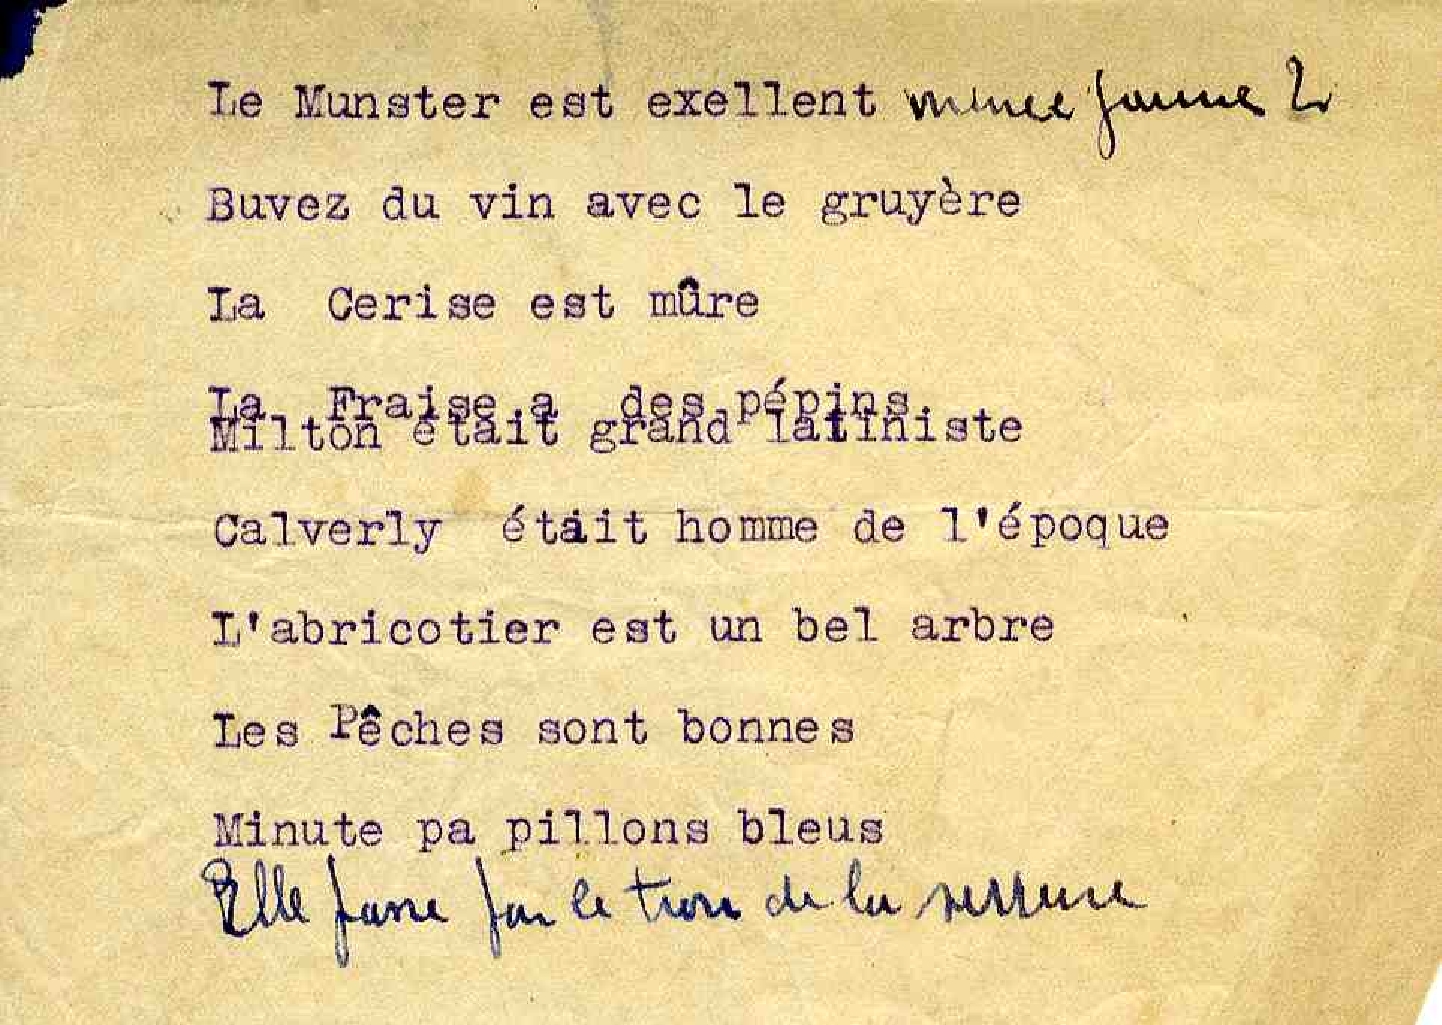 Le Munster est exellent
Buvez du vin avec le gruyère
La Cerise est mûre
La Fraise a des pépins
Milton était grand latiniste
Calverly était homme de l'époque
L'abricotier est un bel arbre
Les Pêches sont bonnes
Minute pa pillons bleus
Elle passe par le trou de la serrure